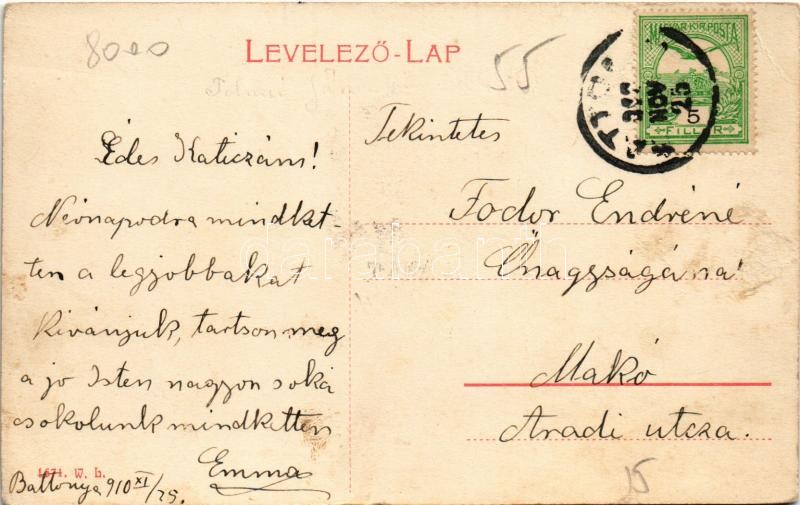 8000
LEVELEZŐ-LAP
55
MAGYAR KIR. POSTA
5
FILLÉR
Édes Katiczám!
Névnapodra mindket-
ten a legjobbakat
kívánjuk, tartson meg
a jo Isten nagyon soká
csokolunk mindketten
Emma
Battonya 910 XI/25.
1671. W. L.
Tekintetes
Fodor Endréné
Őnagyságána'
Makó
Aradi utcza.
15
darabanth